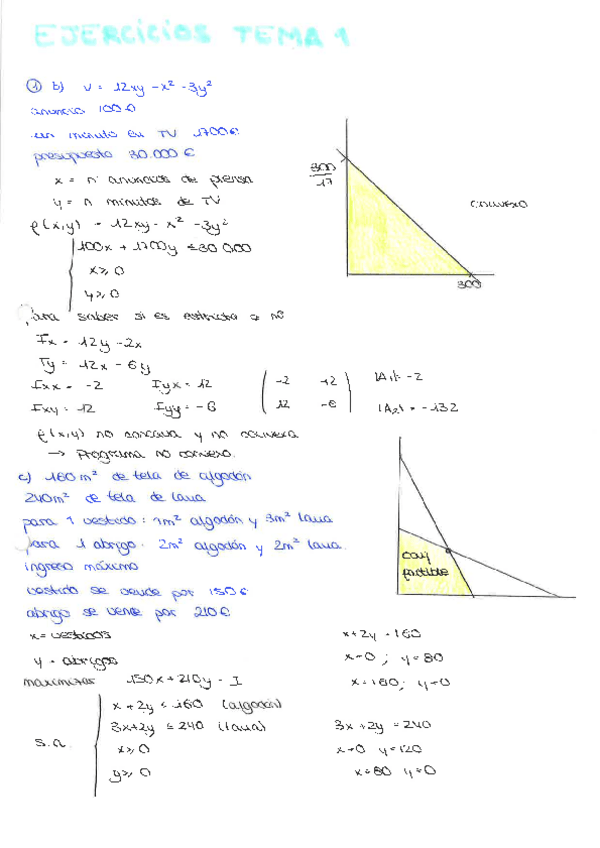 EJERCICIOS TEMA 1
① b) V = 12xy - x² - 3y²
anuncio 100€
un minuto en TV 1700€
presupuesto 30.000 €
x = nº anuncios de prensa
y = n minutos de TV
f(x,y) = 12xy - x² - 3y²
100x + 1700y ≤ 30.000
x ≥ 0
y ≥ 0
300
17
300
convexo
para saber si es estricta o no
Fx = 12y - 2x
Fy = 12x - 6y
Fxx = -2 Fyx = 12
Fxy = 12 Fyy = -6
-2 12
12 -6
|A₁| = -2
|A₂| = -132
f(x,y) no concava y no convexa
→ Programa no convexo.
c) 160m² de tela de algodón
240m² de tela de lana
para 1 vestido: 1m² algodón y 3m² lana
para 1 abrigo: 2m² algodón y 2m² lana.
ingreso máximo
vestido se vende por 150€
abrigo se vende por 210€
conj
factible
x = vestidos
y = abrigos
maximizar 150x + 210y = I
s.a.
x + 2y ≤ 160 (algodón)
3x + 2y ≤ 240 (lana)
x ≥ 0
y ≥ 0
x + 2y = 160
x = 0 ; y = 80
x = 160; y = 0
3x + 2y = 240
x = 0 y = 120
x = 80 y = 0